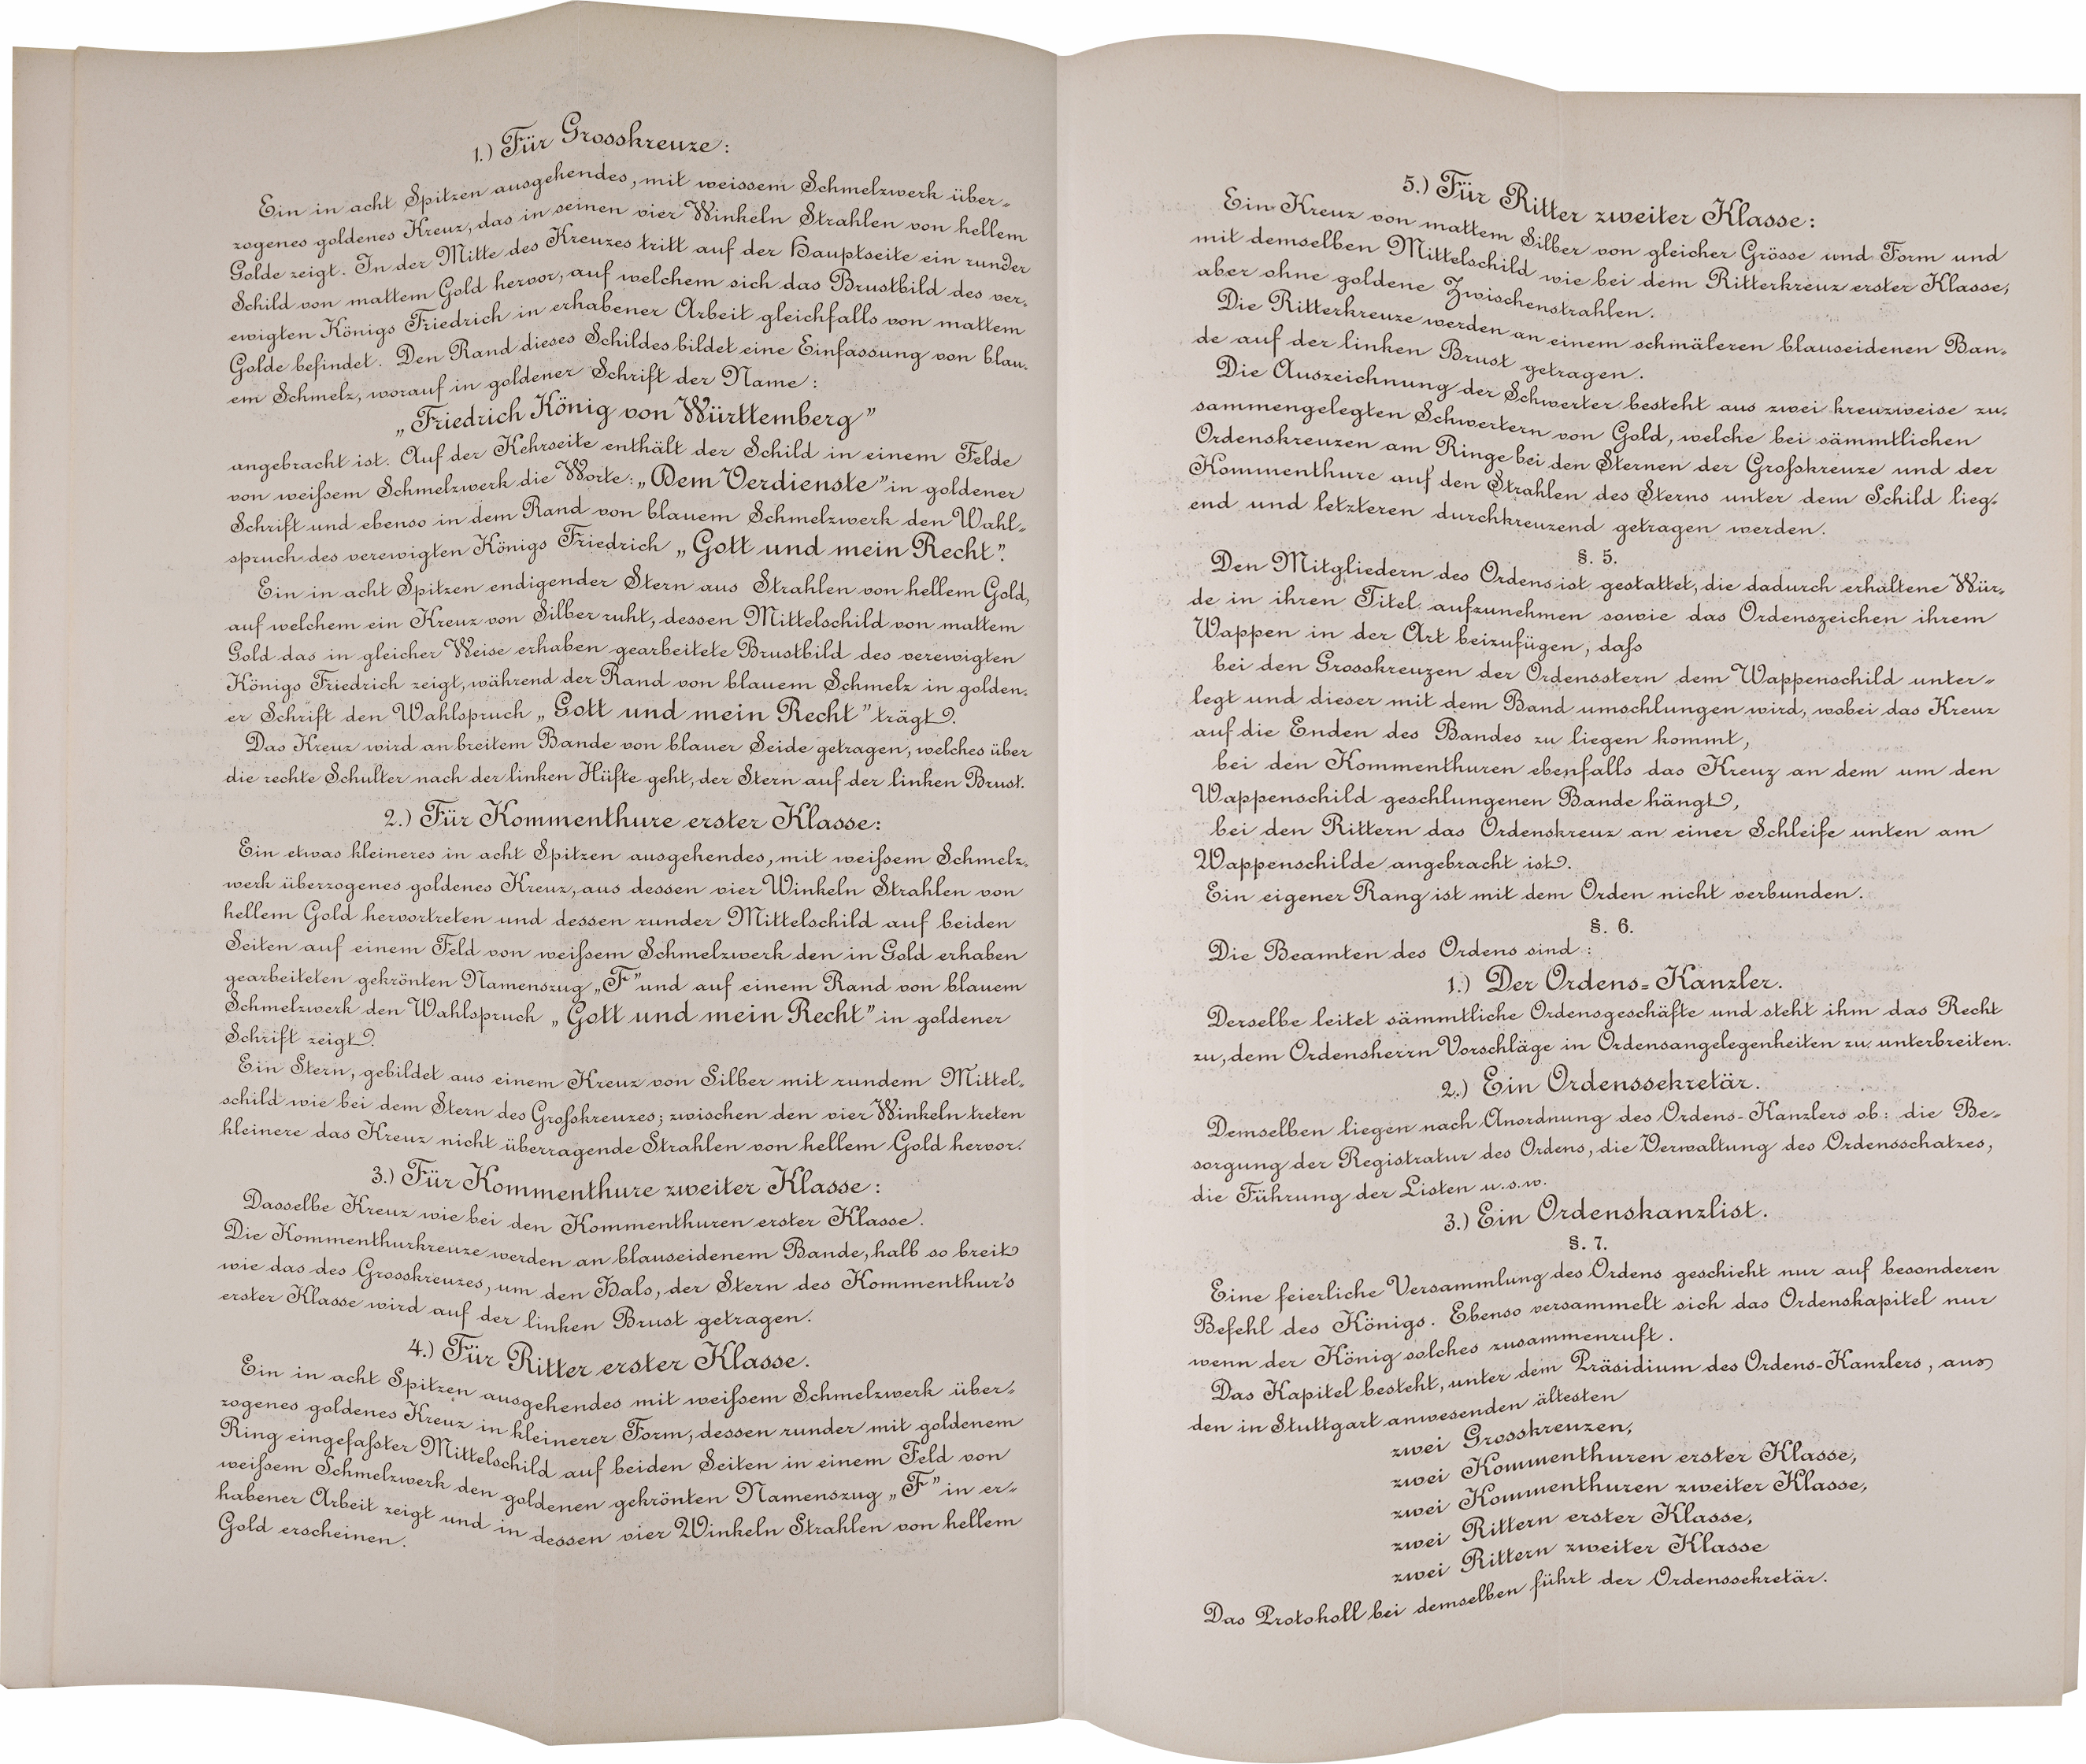 1.) Für Grosskreuze:
Ein in acht Spitzen ausgehendes, mit weissem Schmelzwerk über-
zogenes goldenes Kreuz, das in seinen vier Winkeln Strahlen von hellem
Golde zeigt. In der Mitte des Kreuzes tritt auf der Hauptseite ein runder
Schild von mattem Gold hervor, auf welchem sich das Brustbild des ver-
ewigten Königs Friedrich in erhabener Arbeit gleichfalls von mattem
Golde befindet. Den Rand dieses Schildes bildet eine Einfassung von blau-
em Schmelz, worauf in goldener Schrift der Name:
„Friedrich König von Württemberg"
angebracht ist. Auf der Kehrseite enthält der Schild in einem Felde
von weißem Schmelzwerk die Worte: „Dem Verdienste" in goldener
Schrift und ebenso in dem Rand von blauem Schmelzwerk den Wahl-
spruch des verewigten Königs Friedrich „Gott und mein Recht".
Ein in acht Spitzen endigender Stern aus Strahlen von hellem Gold,
auf welchem ein Kreuz von Silber ruht, dessen Mittelschild von mattem
Gold das in gleicher Weise erhaben gearbeitete Brustbild des verewigten
Königs Friedrich zeigt, während der Rand von blauem Schmelz in golden-
er Schrift den Wahlspruch „Gott und mein Recht" trägt.
Das Kreuz wird an breitem Bande von blauer Seide getragen, welches über
die rechte Schulter nach der linken Hüfte geht, der Stern auf der linken Brust.
2.) Für Kommenthure erster Klasse:
Ein etwas kleineres in acht Spitzen ausgehendes, mit weißem Schmelz-
werk überzogenes goldenes Kreuz, aus dessen vier Winkeln Strahlen von
hellem Gold hervortreten und dessen runder Mittelschild auf beiden
Seiten auf einem Feld von weißem Schmelzwerk den in Gold erhaben
gearbeiteten gekrönten Namenszug „F" und auf einem Rand von blauem
Schmelzwerk den Wahlspruch „Gott und mein Recht" in goldener
Schrift zeigt.
Ein Stern, gebildet aus einem Kreuz von Silber mit rundem Mittel-
schild wie bei dem Stern des Großkreuzes; zwischen den vier Winkeln treten
kleinere das Kreuz nicht überragende Strahlen von hellem Gold hervor.
3.) Für Kommenthure zweiter Klasse:
Dasselbe Kreuz wie bei den Kommenthuren erster Klasse.
Die Kommenthurkreuze werden an blauseidenem Bande, halb so breit
wie das des Grosskreuzes, um den Hals, der Stern des Kommenthur's
erster Klasse wird auf der linken Brust getragen.
4.) Für Ritter erster Klasse.
Ein in acht Spitzen ausgehendes mit weißem Schmelzwerk über-
zogenes goldenes Kreuz in kleinerer Form, dessen runder mit goldenem
Ring eingefaßter Mittelschild auf beiden Seiten in einem Feld von
weißem Schmelzwerk den goldenen gekrönten Namenszug „F" in er-
habener Arbeit zeigt und in dessen vier Winkeln Strahlen von hellem
Gold erscheinen.
5.) Für Ritter zweiter Klasse:
Ein Kreuz von mattem Silber von gleicher Grösse und Form und
mit demselben Mittelschild wie bei dem Ritterkreuz erster Klasse,
aber ohne goldene Zwischenstrahlen.
Die Ritterkreuze werden an einem schmäleren blauseidenen Ban-
de auf der linken Brust getragen.
Die Auszeichnung der Schwerter besteht aus zwei kreuzweise zu-
sammengelegten Schwertern von Gold, welche bei sämmtlichen
Ordenskreuzen am Ringe bei den Sternen der Großkreuze und der
Kommenthure auf den Strahlen des Sterns unter dem Schild lieg-
end und letzteren durchkreuzend getragen werden.
§. 5.
Den Mitgliedern des Ordens ist gestattet, die dadurch erhaltene Wür-
de in ihren Titel aufzunehmen sowie das Ordenszeichen ihrem
Wappen in der Art beizufügen, daß
bei den Grosskreuzen der Ordensstern dem Wappenschild unter-
legt und dieser mit dem Band umschlungen wird, wobei das Kreuz
auf die Enden des Bandes zu liegen kommt,
bei den Kommenthuren ebenfalls das Kreuz an dem um den
Wappenschild geschlungenen Bande hängt,
bei den Rittern das Ordenskreuz an einer Schleife unten am
Wappenschilde angebracht ist.
Ein eigener Rang ist mit dem Orden nicht verbunden.
§. 6.
Die Beamten des Ordens sind:
1.) Der Ordens-Kanzler.
Derselbe leitet sämmtliche Ordensgeschäfte und steht ihm das Recht
zu, dem Ordensherrn Vorschläge in Ordensangelegenheiten zu unterbreiten.
2.) Ein Ordenssekretär.
Demselben liegen nach Anordnung des Ordens-Kanzlers ob: die Be-
sorgung der Registratur des Ordens, die Verwaltung des Ordensschatzes,
die Führung der Listen u.s.w.
3.) Ein Ordenskanzlist.
§. 7.
Eine feierliche Versammlung des Ordens geschieht nur auf besonderen
Befehl des Königs. Ebenso versammelt sich das Ordenskapitel nur
wenn der König solches zusammenruft.
Das Kapitel besteht, unter dem Präsidium des Ordens-Kanzlers, aus
den in Stuttgart anwesenden ältesten
zwei Grosskreuzen,
zwei Kommenthuren erster Klasse,
zwei Kommenthuren zweiter Klasse,
zwei Rittern erster Klasse,
zwei Rittern zweiter Klasse
Das Protokoll bei demselben führt der Ordenssekretär.